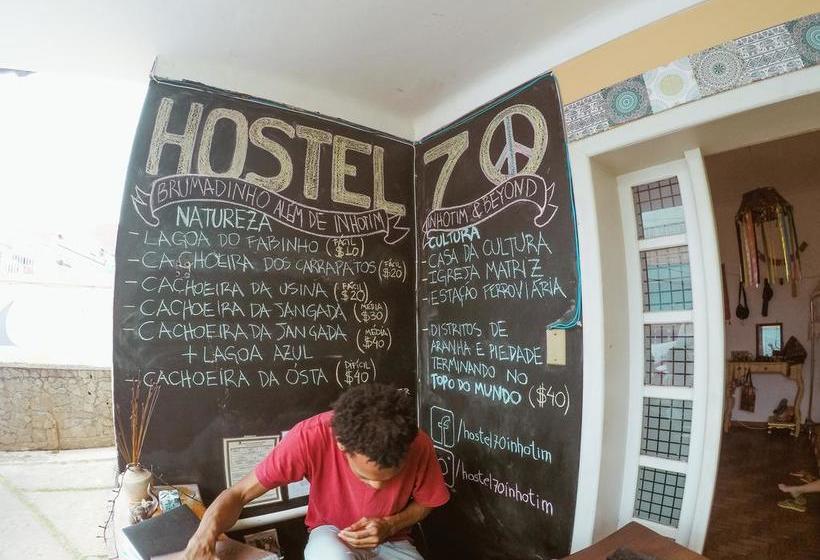 HOSTEL
BRUMADINHO ALÉM DE INHOTIM
NATUREZA
- LAGOA DO FABINHO (FÁCIL $10)
- CACHOEIRA DOS CARRAPATOS (FÁCIL $20)
- CACHOEIRA DA USINA (FÁCIL $20)
- CACHOEIRA DA JANGADA (MÉDIA $30)
- CACHOEIRA DA JANGADA (MÉDIA $40)
+ LAGOA AZUL
- CACHOEIRA DA ÓSTA (DIFÍCIL $40)
70
INHOTIM & BEYOND
CULTURA
- CASA DA CULTURA
- IGREJA MATRIZ
- ESTAÇÃO FERROVIÁRIA
DISTRITOS DE
ARANHA E PIEDADE
TERMINANDO NO
TOPO DO MUNDO ($40)
f /hostel70inhotim
/hostel70inhotim